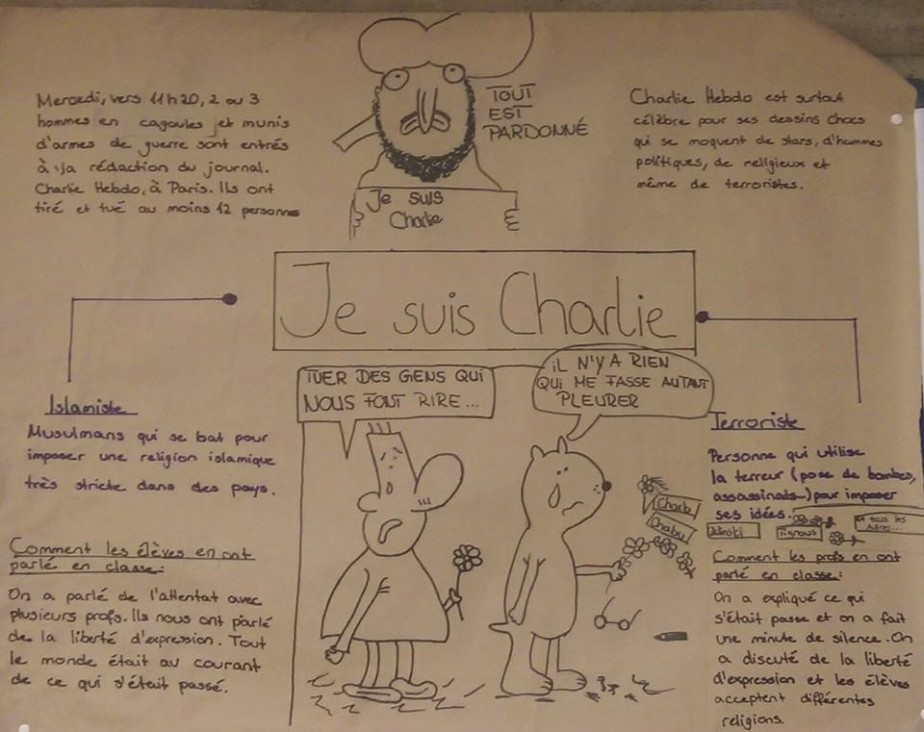 Mercedi, vers 11h20, 2 ou 3
hommes en cagoules et munis
d'armes de guerre sont entrés
à la rédaction du journal.
Charlie Hebdo, à Paris. Ils ont
tiré et tué au moins 12 personnes
TOUT
EST
PARDONNÉ
Je suis
Charlie
Charlie Hebdo est surtout
célèbre pour ses dessins chocs
qui se moquent de stars, d'hommes
politiques, de religieux et
même de terroristes.
Je suis Charlie
Islamiste
Musulmans qui se bat pour
imposer une religion islamique
très stricte dans des pays.
Comment les élèves en ont
parlé en classe:
On a parlé de l'attentat avec
plusieurs profs. Ils nous ont parlé
de la liberté d'expression. Tout
le monde était au courant
de ce qui s'était passé.
TUER DES GENS QUI
NOUS FONT RIRE...
IL N'Y A RIEN
QUI ME FASSE AUTANT
PLEURER
Charb
Cabu
Tignous
et tous les
autres...
Terroriste
Personne qui utilise
la terreur (pose de bombes,
assassinats) pour imposer
ses idées.
Comment les profs en ont
parlé en classe:
On a expliqué ce qui
s'était passé et on a fait
une minute de silence. On
a discuté de la liberté
d'expression et les élèves
acceptent différentes
religions.